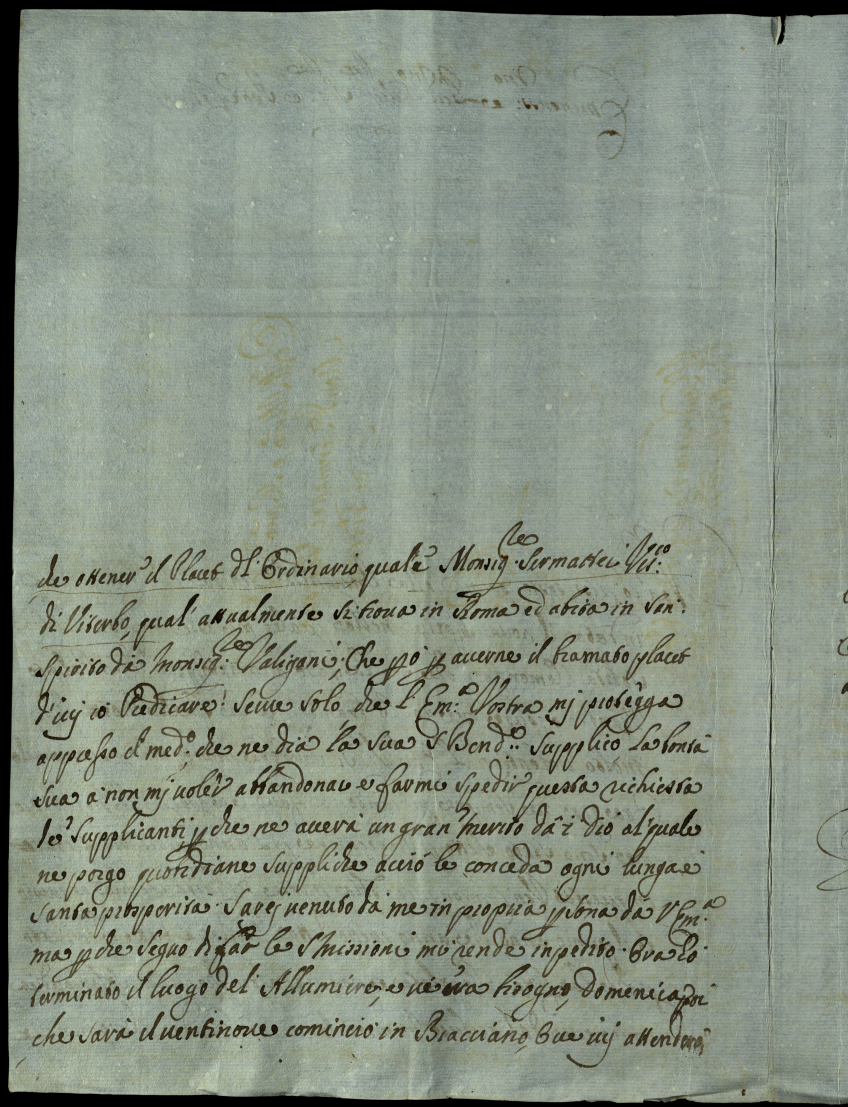 de ottener' il Placet dl' Ordinario, qual'è Monsig.re Sermattei Ves.co
di Viterbo, qual' attualmente si trova in Roma ed abita in San.
Spirito da Monsig.re Valigani; Che però p averne il bramato placet
d'ivi io Predicare. Serve solo, che l' Em.a Vostra mj protegga
appresso el med.o che ne dia la sua S Bend.ne Supplico la bontà
sua à non mj voler abbandonar e farmi spedir questa richiesta
de' Supplicanti, p che ne averà un gran' merito da Dio al quale
ne porgo quotidiane suppliche acciò le conceda ogni lunga è
santa prosperità. Sarej venuto da me in propria psona da V Em.a
ma p che seguo di far le S Missioni mi rende inpedito. Ora hò
terminato il luogo del' Allumiere, e ve era bisogno, Domenica poi
che sarà il ventinove comincio in Bracciano, Ove ivj attenderò